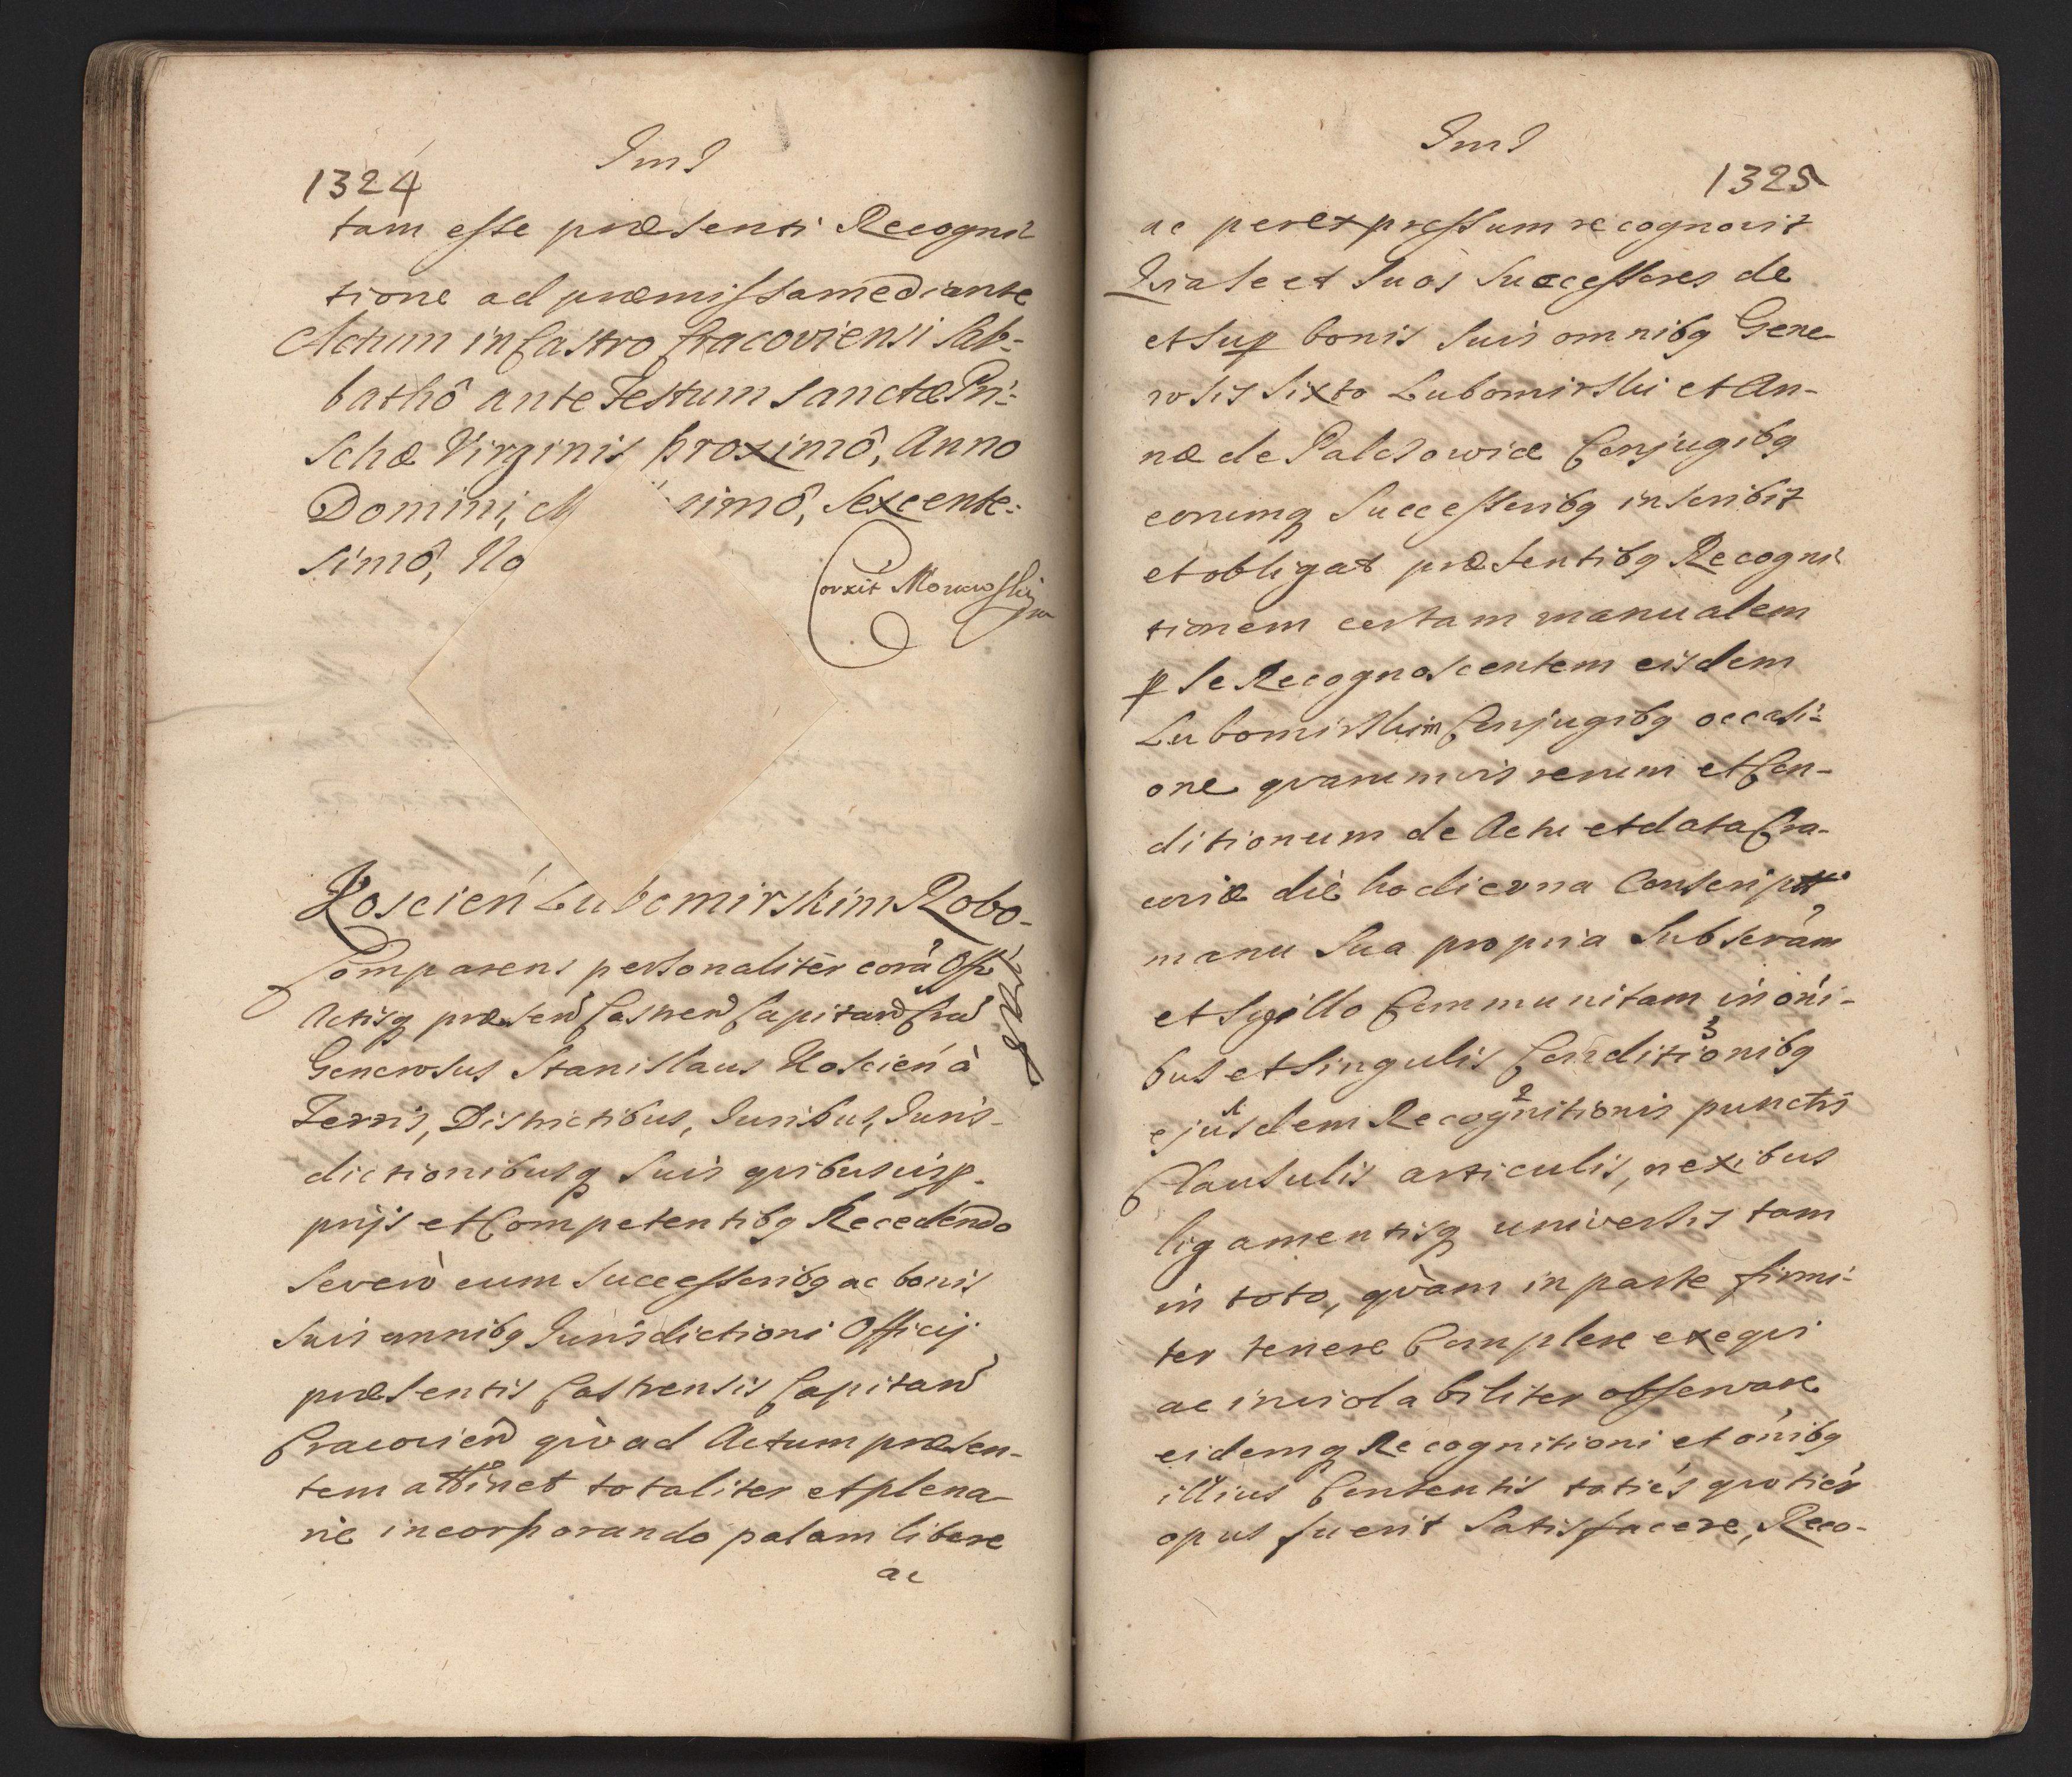 1324
JmJ
tam esse præsenti Recogni-
tione ad præmissa mediante
Actum in Castro Cracoviensi Sab-
bathô ante Festum sanctæ Pri-
schæ Virginis proximô, Anno
Domini, M simô, Sexcente-
simô, No
Corxit Morawski
mp
Koscień Lubomirskim Robo-
rat
Comparens personaliter corā Offo
Actisq præsen Castren Capitan Cra
Generosus Stanislaus Koscień à
Terris, Districtibus, Juribus, Juris-
dictionibusq suis quibusvis p-
prijs et Competentibq Recedendo
Severò cum Successoribq ac bonis
suis omnibq Jurisdictioni Officij
præsentis Castrensis Capitan
Cracovien qvò ad Actum præsen-
tem attinet totaliter et plena-
rie incorporando palam libere
ac
JmJ
1325
ac per expressum recognovit
Quia se et suos Successores de
et sup bonis suis omnibq Gene-
rosis Sixto Lubomirski et An-
næ de Palczowicæ Conjugibq
eorumq Successoribq inscribit
et obligat præsentibq Recogni-
tionem certam manualem
p se Recognoscentem eisdem
Lubomirskim Conjugibq occasi-
one qvarumvis rerum et Con-
ditionum de Actu et data Cra-
coviæ diè hodierna Conscriptā
manu sua propria Subscrām
et Sygillo Communitam in oni-
bus et singulis Conditionibq 3
ejusdem 1 Recognitionis 2 punctis
Clausulis articulis, nexibus
ligamentisq universis tam
in toto, qvàm in parte firmi-
ter tenere Complere exeqvi
ac inviolabiliter observare
eidemq Recognitioni et onibq
illius Contentis totiés qvotiés
opus fuerit Satisfacere, Reco-